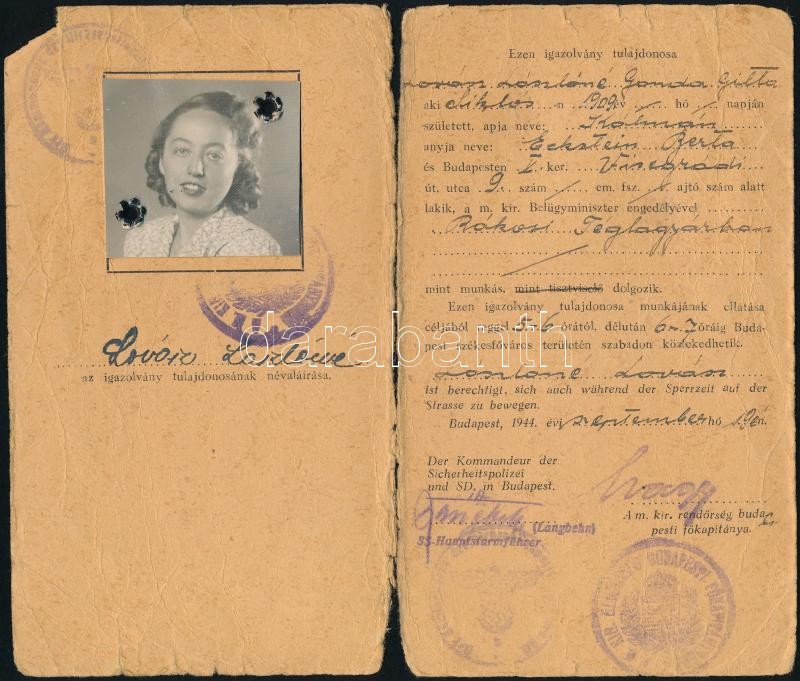 Lovász Lászlóné
az igazolvány tulajdonosának névaláírása.
Ezen igazolvány tulajdonosa
Lászlóné Gonda Gitta
aki Siklós -n 1909 év / hó / napján
született, apja neve: Kálmán
anyja neve: Eckstein Berta
és Budapesten V ker. Visegrádi
út, utca 9 szám / em. fsz. 1 ajtó szám alatt
lakik, a m. kir. Belügyminiszter engedélyével
Rákosi Téglagyárban
mint munkás, mint tisztviselő dolgozik.
Ezen igazolvány tulajdonosa munkájának ellátása
céljából reggel 5-6 órától, délután 6-7 óráig Buda-
pest székesfőváros területén szabadon közlekedhetik.
Lászlóné
ist berechtigt, sich auch während der Sperrzeit auf der
Strasse zu bewegen.
Budapest, 1944. évi szeptember hó 19 én.
Der Kommandeur der
Sicherheitspolizei
und SD. in Budapest.
(Längbehn)
SS-Hauptsturmführer
Nagy
A m. kir. rendőrség buda-
pesti főkapitánya.
darabanth